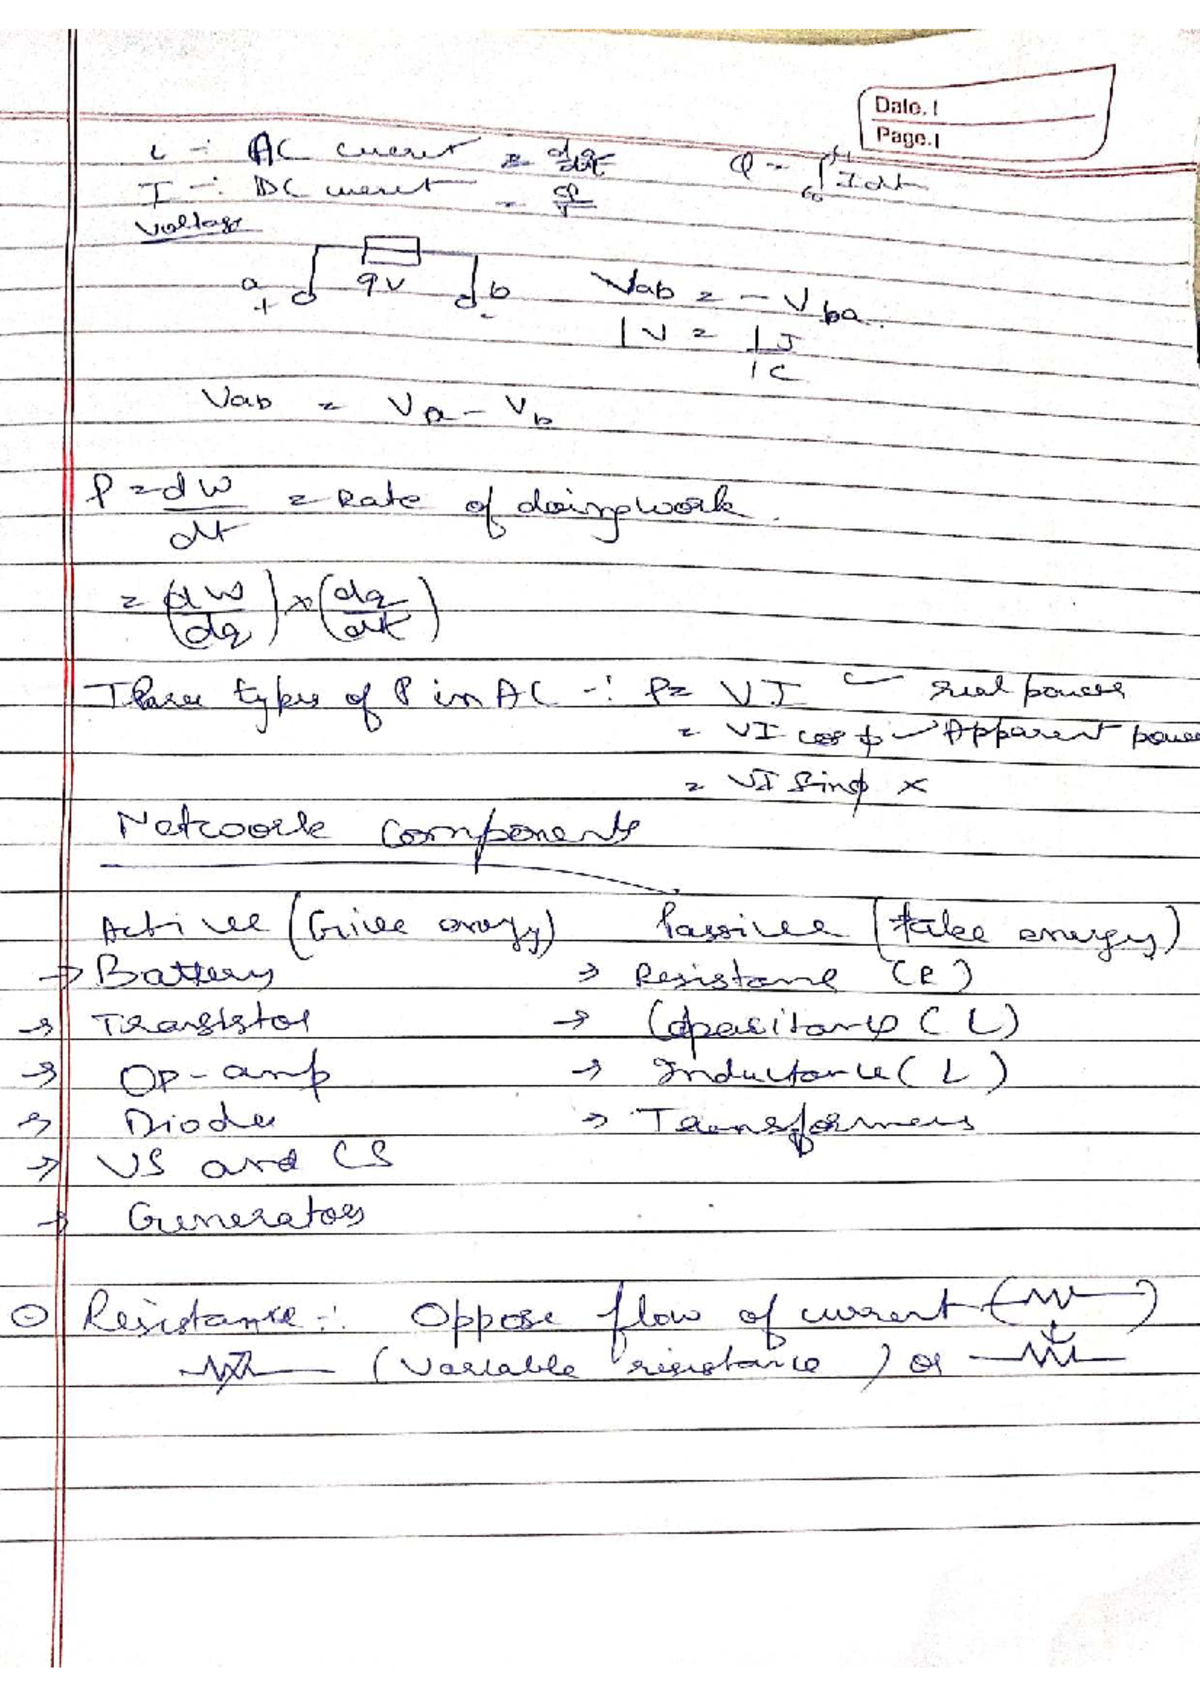 Date.
Page.
i :- AC current = dq/dt Q = ∫ I dt
I :- DC current =
Voltage
a 9V b
+ -
Vab = -Vba
1V = 1J/1C
Vab = Va - Vb
P = dw/dt = Rate of doing work.
= (dw/dq) × (dq/dt)
Three types of P in AC :- P = VI - real power
= VI cos ϕ - Apparent power
= VI Sinϕ ×
Network Components
Active (Give energy) Passive (take energy)
→ Battery → Resistane (R)
→ Transistor → Capacitance (L)
→ Op-amp → Inductance (L)
→ Diode → Transformers
→ VS and CS
→ Generators
Resistance :- Oppose flow of current
(Variable resistance) or